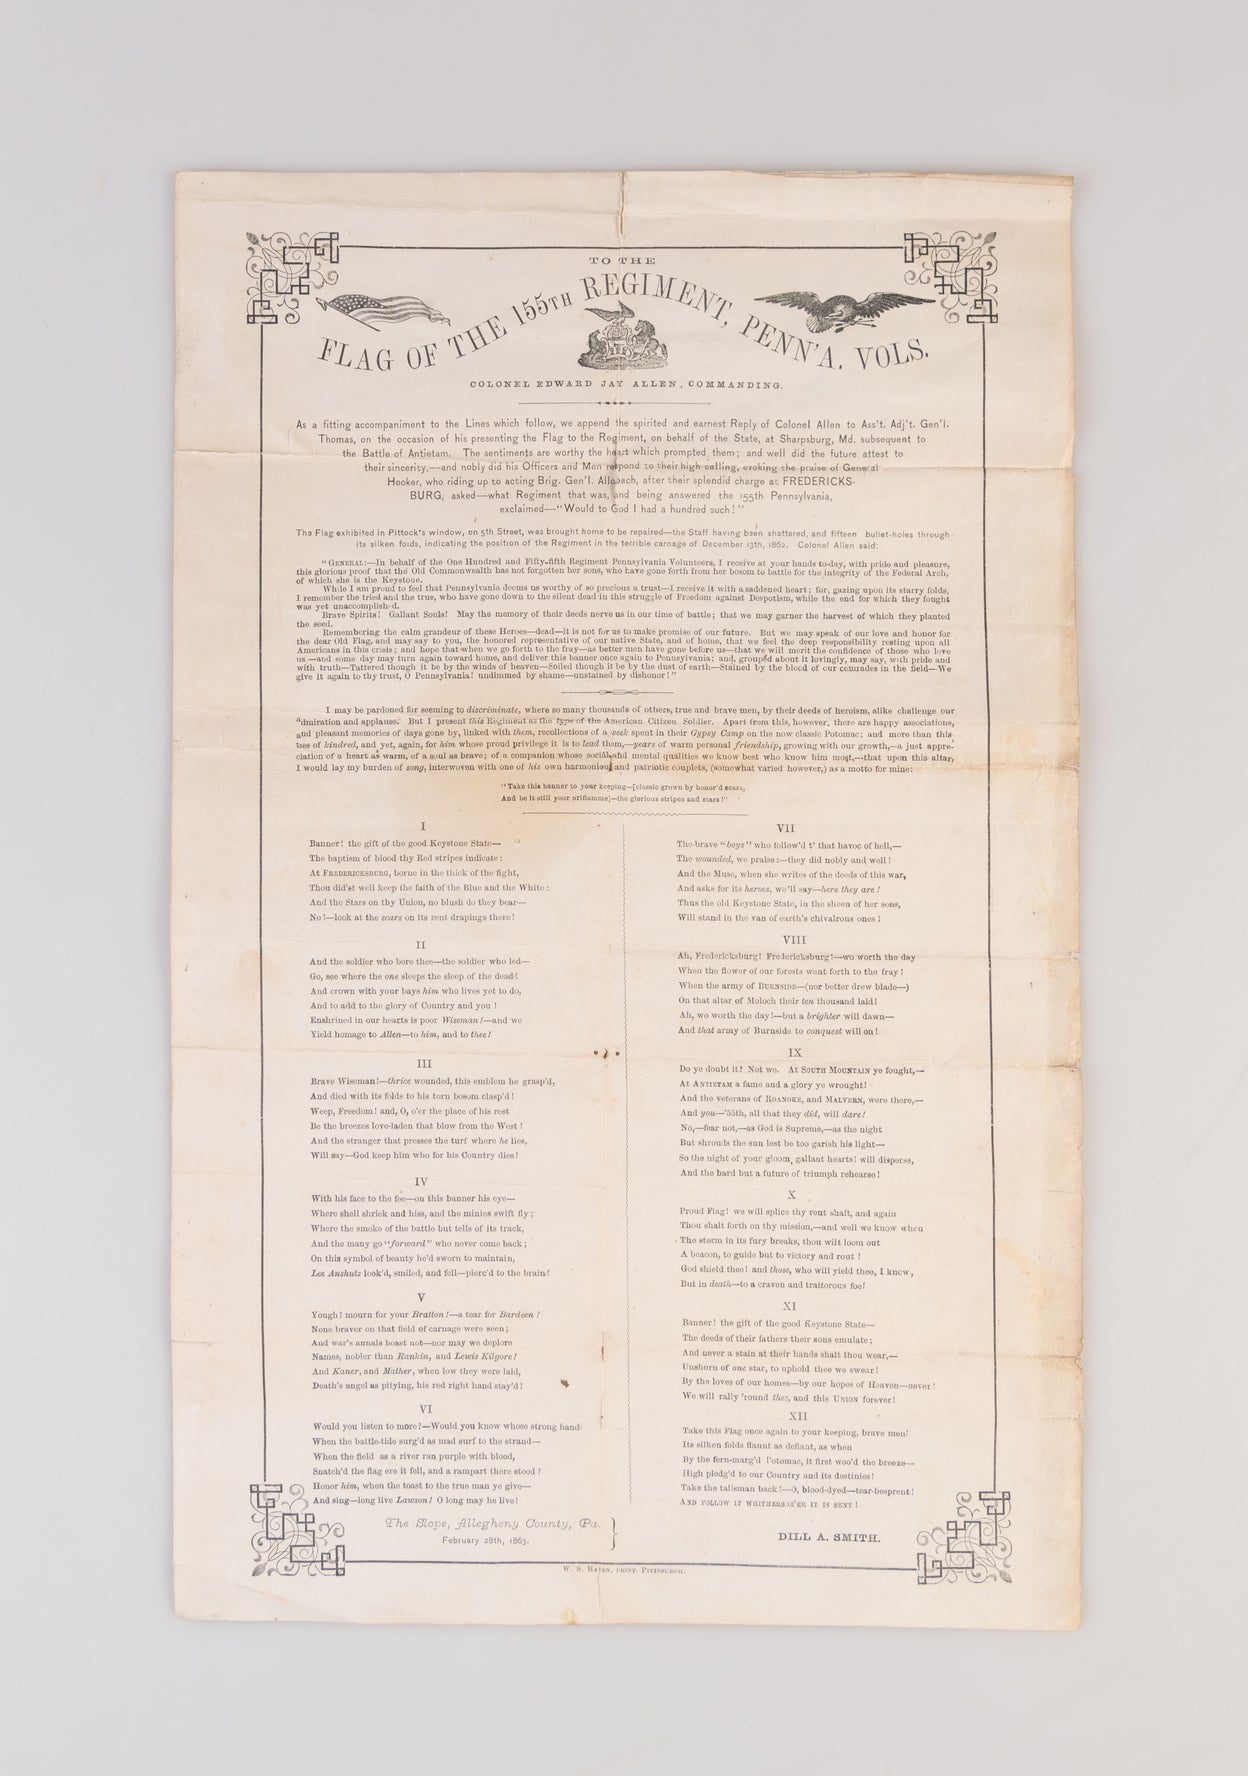 TO THE
FLAG OF THE 155TH REGIMENT, PENN'A. VOLS.
COLONEL EDWARD JAY ALLEN, COMMANDING.
As a fitting accompaniment to the Lines which follow, we append the spirited and earnest Reply of Colonel Allen to Ass't. Adj't. Gen'l.
Thomas, on the occasion of his presenting the Flag to the Regiment, on behalf of the State, at Sharpsburg, Md. subsequent to
the Battle of Antietam. The sentiments are worthy the heart which prompted them; and well did the future attest to
their sincerity,—and nobly did his Officers and Men respond to their high calling, evoking the praise of General
Hooker, who riding up to acting Brig. Gen'l. Allabach, after their splendid charge at FREDERICKS-
BURG, asked—what Regiment that was, and being answered the 155th Pennsylvania,
exclaimed—"Would to God I had a hundred such!"
The Flag exhibited in Pittock's window, on 5th Street, was brought home to be repaired—the Staff having been shattered, and fifteen bullet-holes through
its silken folds, indicating the position of the Regiment in the terrible carnage of December 13th, 1862. Colonel Allen said:
"GENERAL:—In behalf of the One Hundred and Fifty-fifth Regiment Pennsylvania Volunteers, I receive at your hands to-day, with pride and pleasure,
this glorious proof that the Old Commonwealth has not forgotten her sons, who have gone forth from her bosom to battle for the integrity of the Federal Arch,
of which she is the Keystone.
While I am proud to feel that Pennsylvania deems us worthy of so precious a trust—I receive it with a saddened heart; for, gazing upon its starry folds,
I remember the tried and the true, who have gone down to the silent dead in this struggle of Freedom against Despotism, while the end for which they fought
was yet unaccomplish-d.
Brave Spirits! Gallant Souls! May the memory of their deeds nerve us in our time of battle; that we may garner the harvest of which they planted
the seed.
Remembering the calm grandeur of these Heroes—dead—it is not for us to make promise of our future. But we may speak of our love and honor for
the dear Old Flag, and may say to you, the honored representative of our native State, and of home, that we feel the deep responsibility resting upon all
Americans in this crisis; and hope that when we go forth to the fray—as better men have gone before us—that we will merit the confidence of those who love
us—and some day may turn again toward home, and deliver this banner once again to Pennsylvania; and, grouped about it lovingly, may say, with pride and
with truth—Tattered though it be by the winds of heaven—Soiled though it be by the dust of earth—Stained by the blood of our comrades in the field—We
give it again to thy trust, O Pennsylvania! undimmed by shame—unstained by dishonor!"
I may be pardoned for seeming to discriminate, where so many thousands of others, true and brave men, by their deeds of heroism, alike challenge our
admiration and applause. But I present this Regiment as the type of the American Citizen Soldier. Apart from this, however, there are happy associations,
and pleasant memories of days gone by, linked with them, recollections of a week spent in their Gypsy Camp on the now classic Potomac; and more than this
ties of kindred, and yet, again, for him whose proud privilege it is to lead them,—years of warm personal friendship, growing with our growth,—a just appre-
ciation of a heart as warm, of a soul as brave; of a companion whose social and mental qualities we know best who know him most,—that upon this altar,
I would lay my burden of song, interwoven with one of his own harmonious and patriotic couplets, (somewhat varied however,) as a motto for mine:
"Take this banner to your keeping—[classic grown by honor'd scars,
And be it still your oriflamme]—the glorious stripes and stars!"
I
Banner! the gift of the good Keystone State—
The baptism of blood thy Red stripes indicate:
At FREDERICKSBURG, borne in the thick of the fight,
Thou did'st well keep the faith of the Blue and the White:
And the Stars on thy Union, no blush do they bear—
No!—look at the scars on its rent drapings there!
II
And the soldier who bore thee—the soldier who led—
Go, see where the one sleeps the sleep of the dead!
And crown with your bays him who lives yet to do,
And to add to the glory of Country and you!
Enshrined in our hearts is poor Wiseman!—and we
Yield homage to Allen—to him, and to thee!
III
Brave Wiseman!—thrice wounded, this emblem he grasp'd,
And died with its folds to his torn bosom clasp'd!
Weep, Freedom! and, O, o'er the place of his rest
Be the breezes love-laden that blow from the West!
And the stranger that presses the turf where he lies,
Will say—God keep him who for his Country dies!
IV
With his face to the foe—on this banner his eye—
Where shell shriek and hiss, and the minies swift fly;
Where the smoke of the battle but tells of its track,
And the many go "forward" who never come back;
On this symbol of beauty he'd sworn to maintain,
Lee Anshutz look'd, smiled, and fell—pierc'd to the brain!
V
Yough! mourn for your Bratton!—a tear for Bardeen!
None braver on that field of carnage were seen;
And war's annals boast not—nor may we deplore
Names, nobler than Rankin, and Lewis Kilgore!
And Kaner, and Mather, when low they were laid,
Death's angel as pitying, his red right hand stay'd!
VI
Would you listen to more?—Would you know whose strong hand
When the battle-tide surg'd as mad surf to the strand—
When the field as a river ran purple with blood,
Snatch'd the flag ere it fell, and a rampart there stood?
Honor him, when the toast to the true man ye give—
And sing—long live Lawson! O long may he live!
The Slope, Allegheny County, Pa.
February 28th, 1863.
VII
The brave "boys" who follow'd t' that havoc of hell,—
The wounded, we praise:—they did nobly and well!
And the Muse, when she writes of the deeds of this war,
And asks for its heroes, we'll say—here they are!
Thus the old Keystone State, in the sheen of her sons,
Will stand in the van of earth's chivalrous ones!
VIII
Ah, Fredericksburg! Fredericksburg!—wo worth the day
When the flower of our forests went forth to the fray!
When the army of BURNSIDE—(nor better drew blade—)
On that altar of Moloch their ten thousand laid!
Ah, wo worth the day!—but a brighter will dawn—
And that army of Burnside to conquest will on!
IX
Do ye doubt it? Not we. At SOUTH MOUNTAIN ye fought,—
At ANTIETAM a fame and a glory ye wrought!
And the veterans of ROANOKE, and MALVERN, were there,—
And you—'55th, all that they did, will dare!
No,—fear not,—as God is Supreme,—as the night
But shrouds the sun lest be too garish his light—
So the night of your gloom, gallant hearts! will disperse,
And the bard but a future of triumph rehearse!
X
Proud Flag! we will splice thy rent shaft, and again
Thou shalt forth on thy mission,—and well we know when
The storm in its fury breaks, thou wilt loom out
A beacon, to guide but to victory and rout!
God shield thee! and those, who will yield thee, I know,
But in death—to a craven and traitorous foe!
XI
Banner! the gift of the good Keystone State—
The deeds of their fathers their sons emulate;
And never a stain at their hands shalt thou wear,—
Unshorn of one star, to uphold thee we swear!
By the loves of our homes—by our hopes of Heaven—never!
We will rally 'round thee, and this UNION forever!
XII
Take this Flag once again to your keeping, brave men!
Its silken folds flaunt as defiant, as when
By the fern-marg'd Potomac, it first woo'd the breeze—
High pledg'd to our Country and its destinies!
Take the talisman back!—O, blood-dyed—tear-besprent!
AND FOLLOW IT WHITHERSOE'ER IT IS SENT!
DILL A. SMITH.
W. S. HAVEN, PRINT. PITTSBURGH.